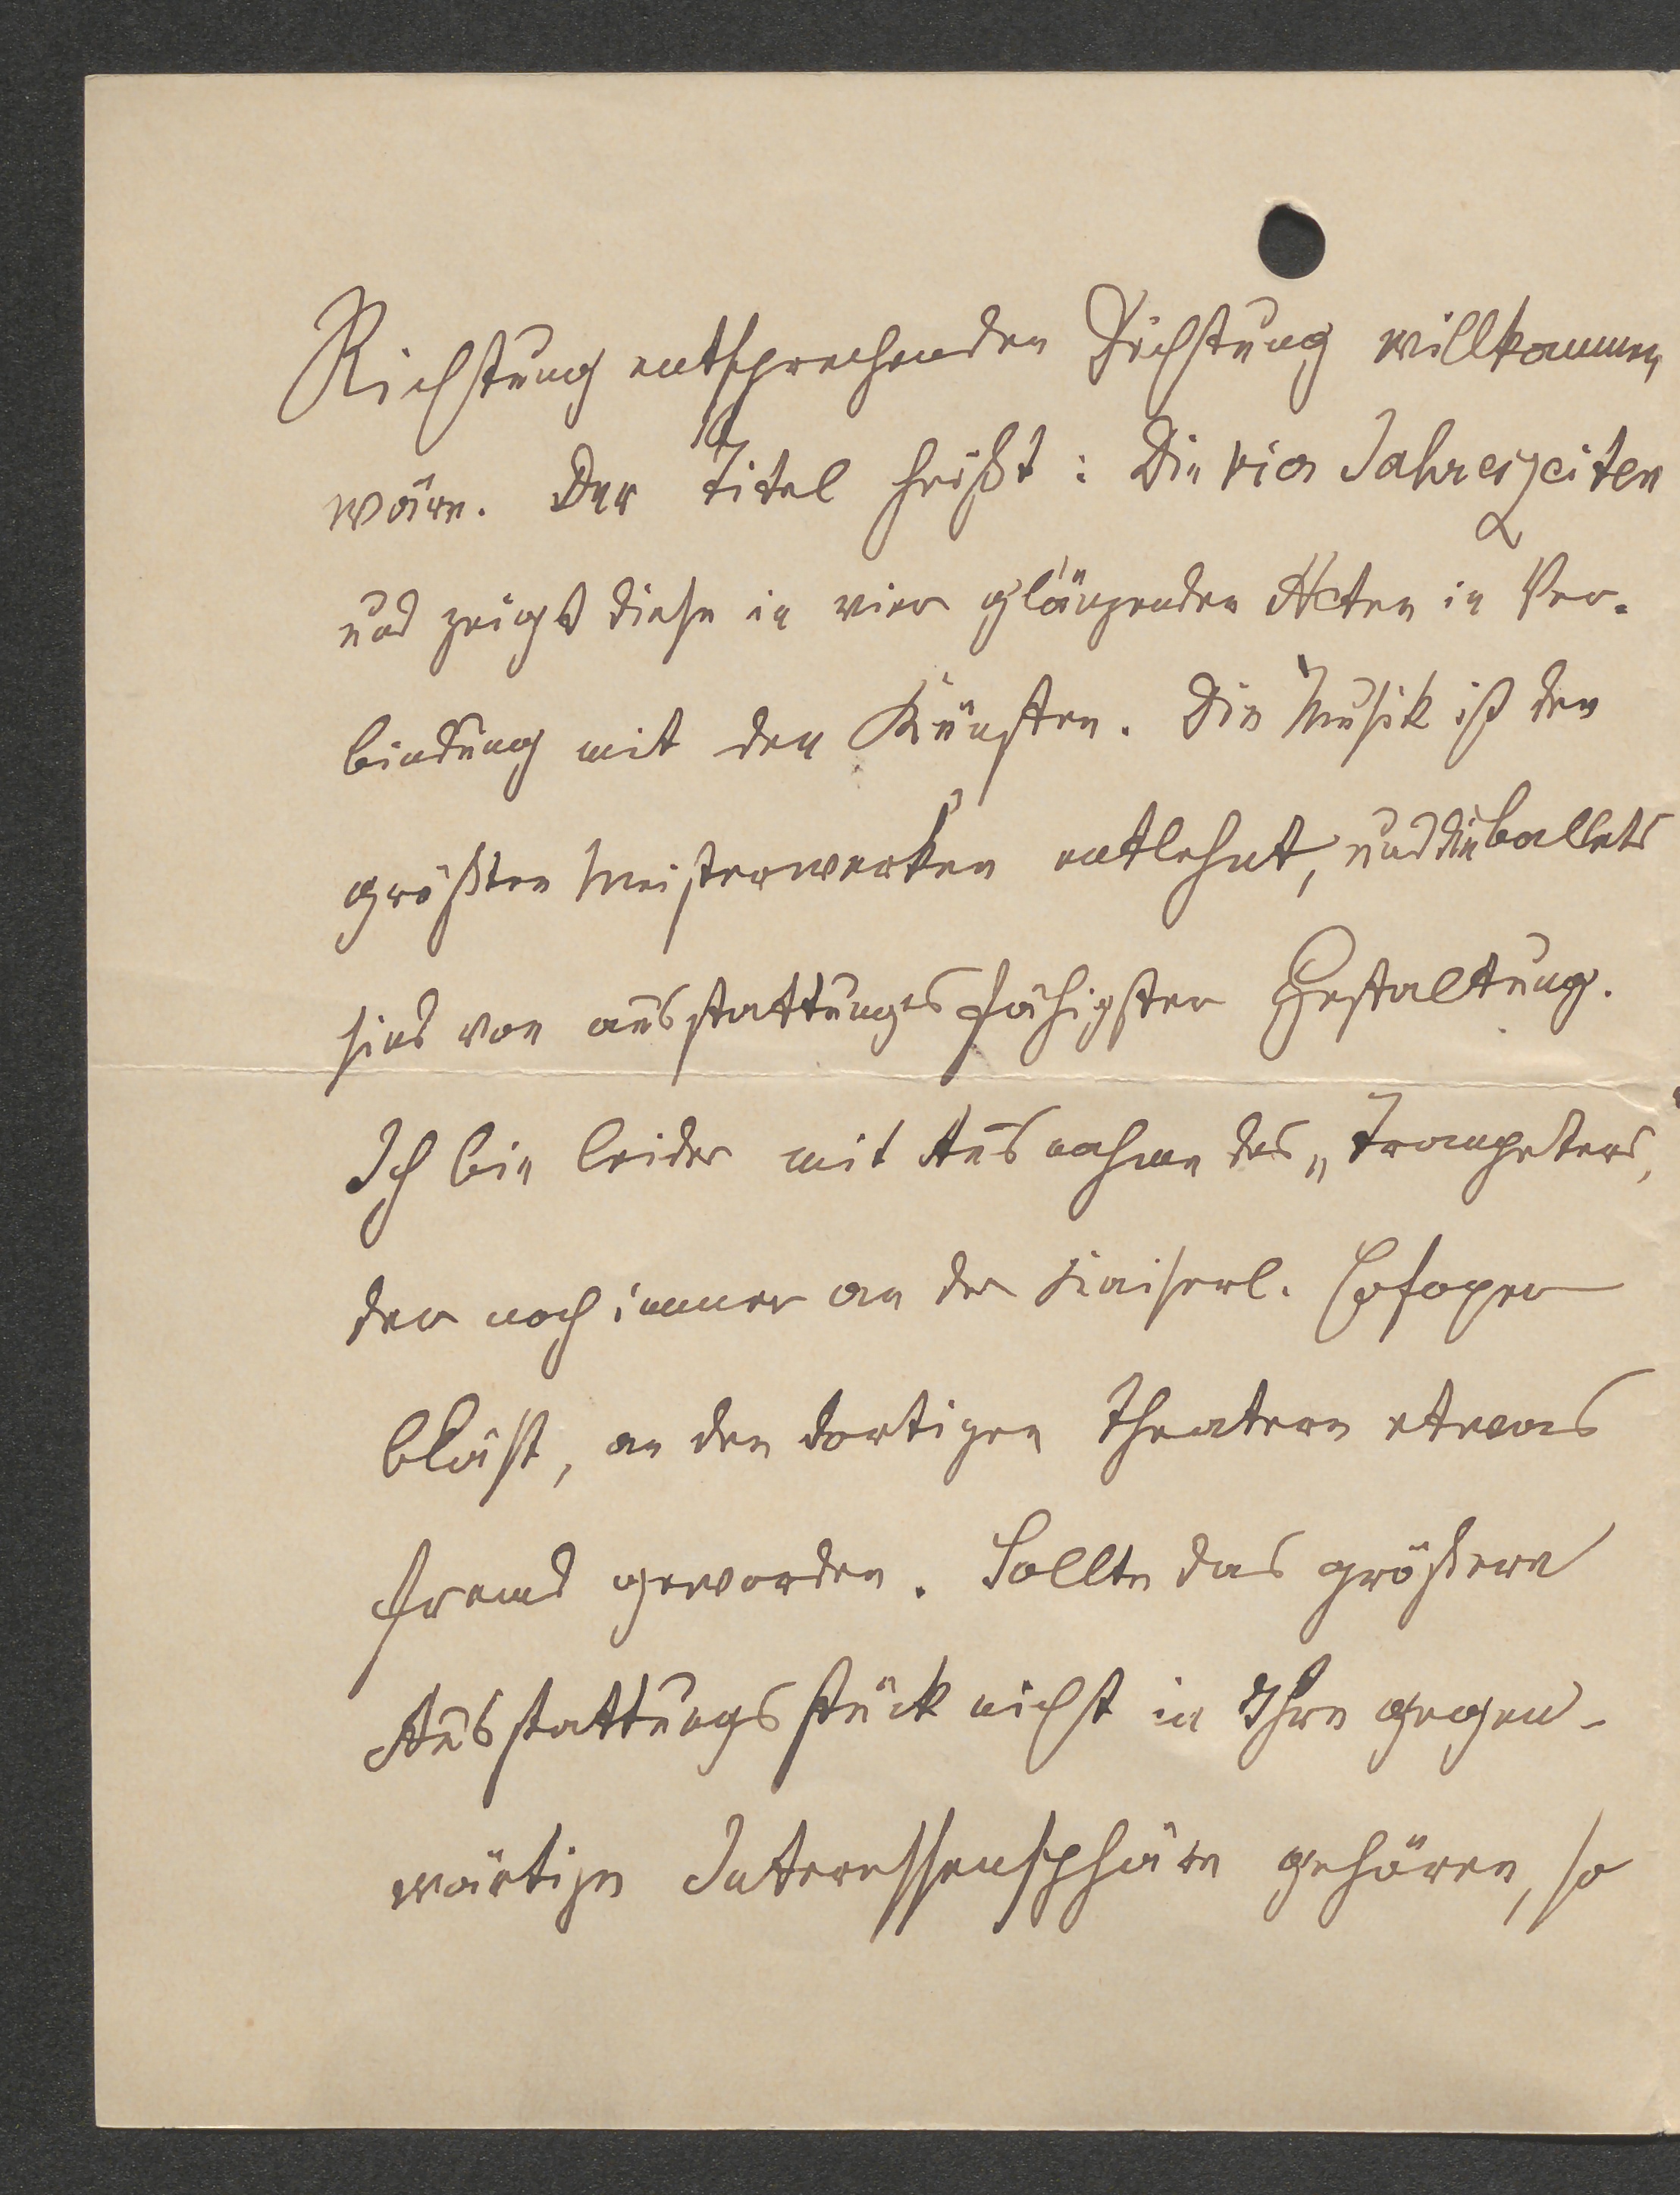 Richtung entsprechenden Dichtung willkommen
wäre. Der Titel heißt: Die vier Jahreszeiten
und zeigt diese in vier glänzenden Akten in Ver-
bindung mit den Künsten. Die Musik ist den
größten Meisterwerken entlehnt, und die Ballets
sind von ausstattungsfähigster Gestaltung.
Ich bin leider mit Ausnahme des „Trompeters,
der noch immer an der Kaiserl. Hofoper
bläst, an den dortigen Theatern etwas
fremd geworden. Sollte das größere
Ausstattungsstück nicht in Ihre gegen-
wärtige Interessensphäre gehören, so